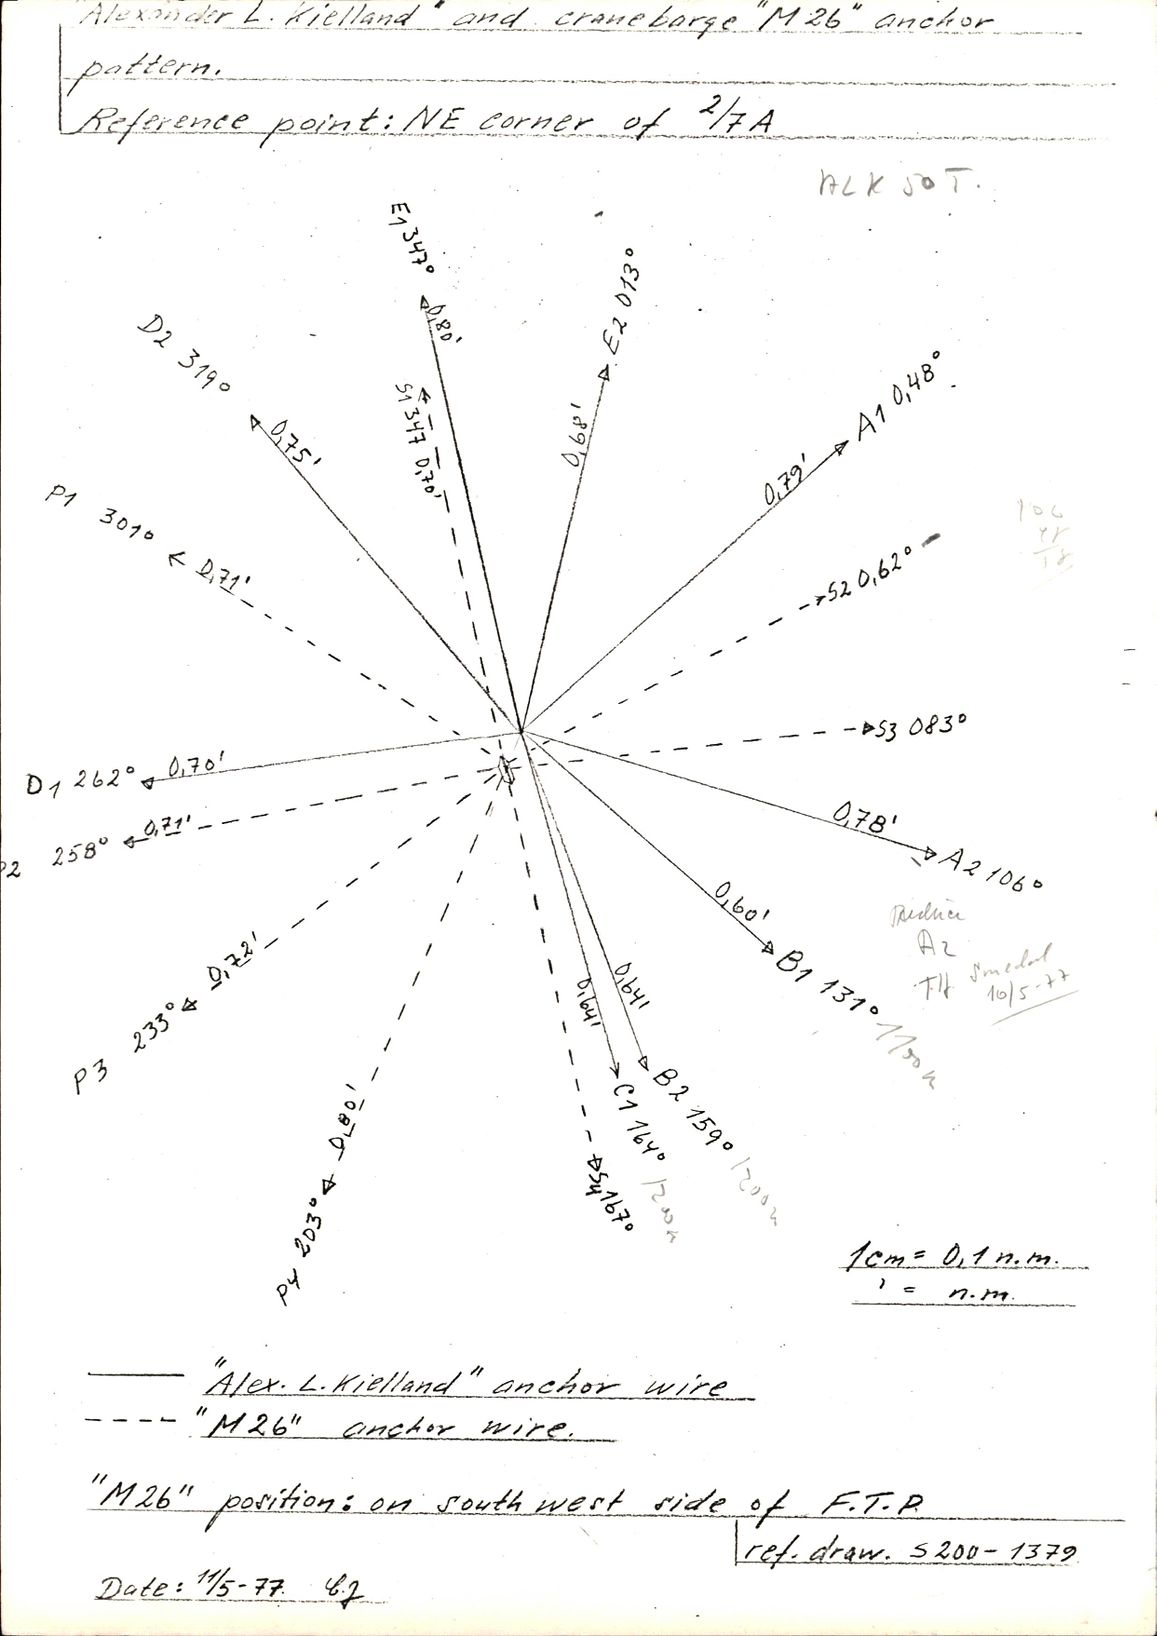 "Alexander L. Kielland" and cranebarge "M26" anchor
pattern.
Reference point: NE corner of 2/7A
ALK 50 T.
E1 347°
0,80'
E2 013°
0,68'
D2 319°
0,75'
S1 347 0,70'
A1 0,48°
0,79'
P1 301°
0,71'
S2 0,62°
106
S3 083°
D1 262°
0,70'
P2 258°
0,71'
0,78'
A2 106°
0,60'
B1 131°
A2
Tlf Smedal
10/5-77
P3 233°
0,72'
0,64'
0,64'
B2 159° 1200m
C1 164° 1200m
S4 167°
P4 203°
0,80'
1cm = 0,1 n.m.
' = n.m.
"Alex. L. Kielland" anchor wire
"M26" anchor wire.
"M26" position: on south west side of F.T.P.
ref. draw. S200-1379
Date: 11/5-77.